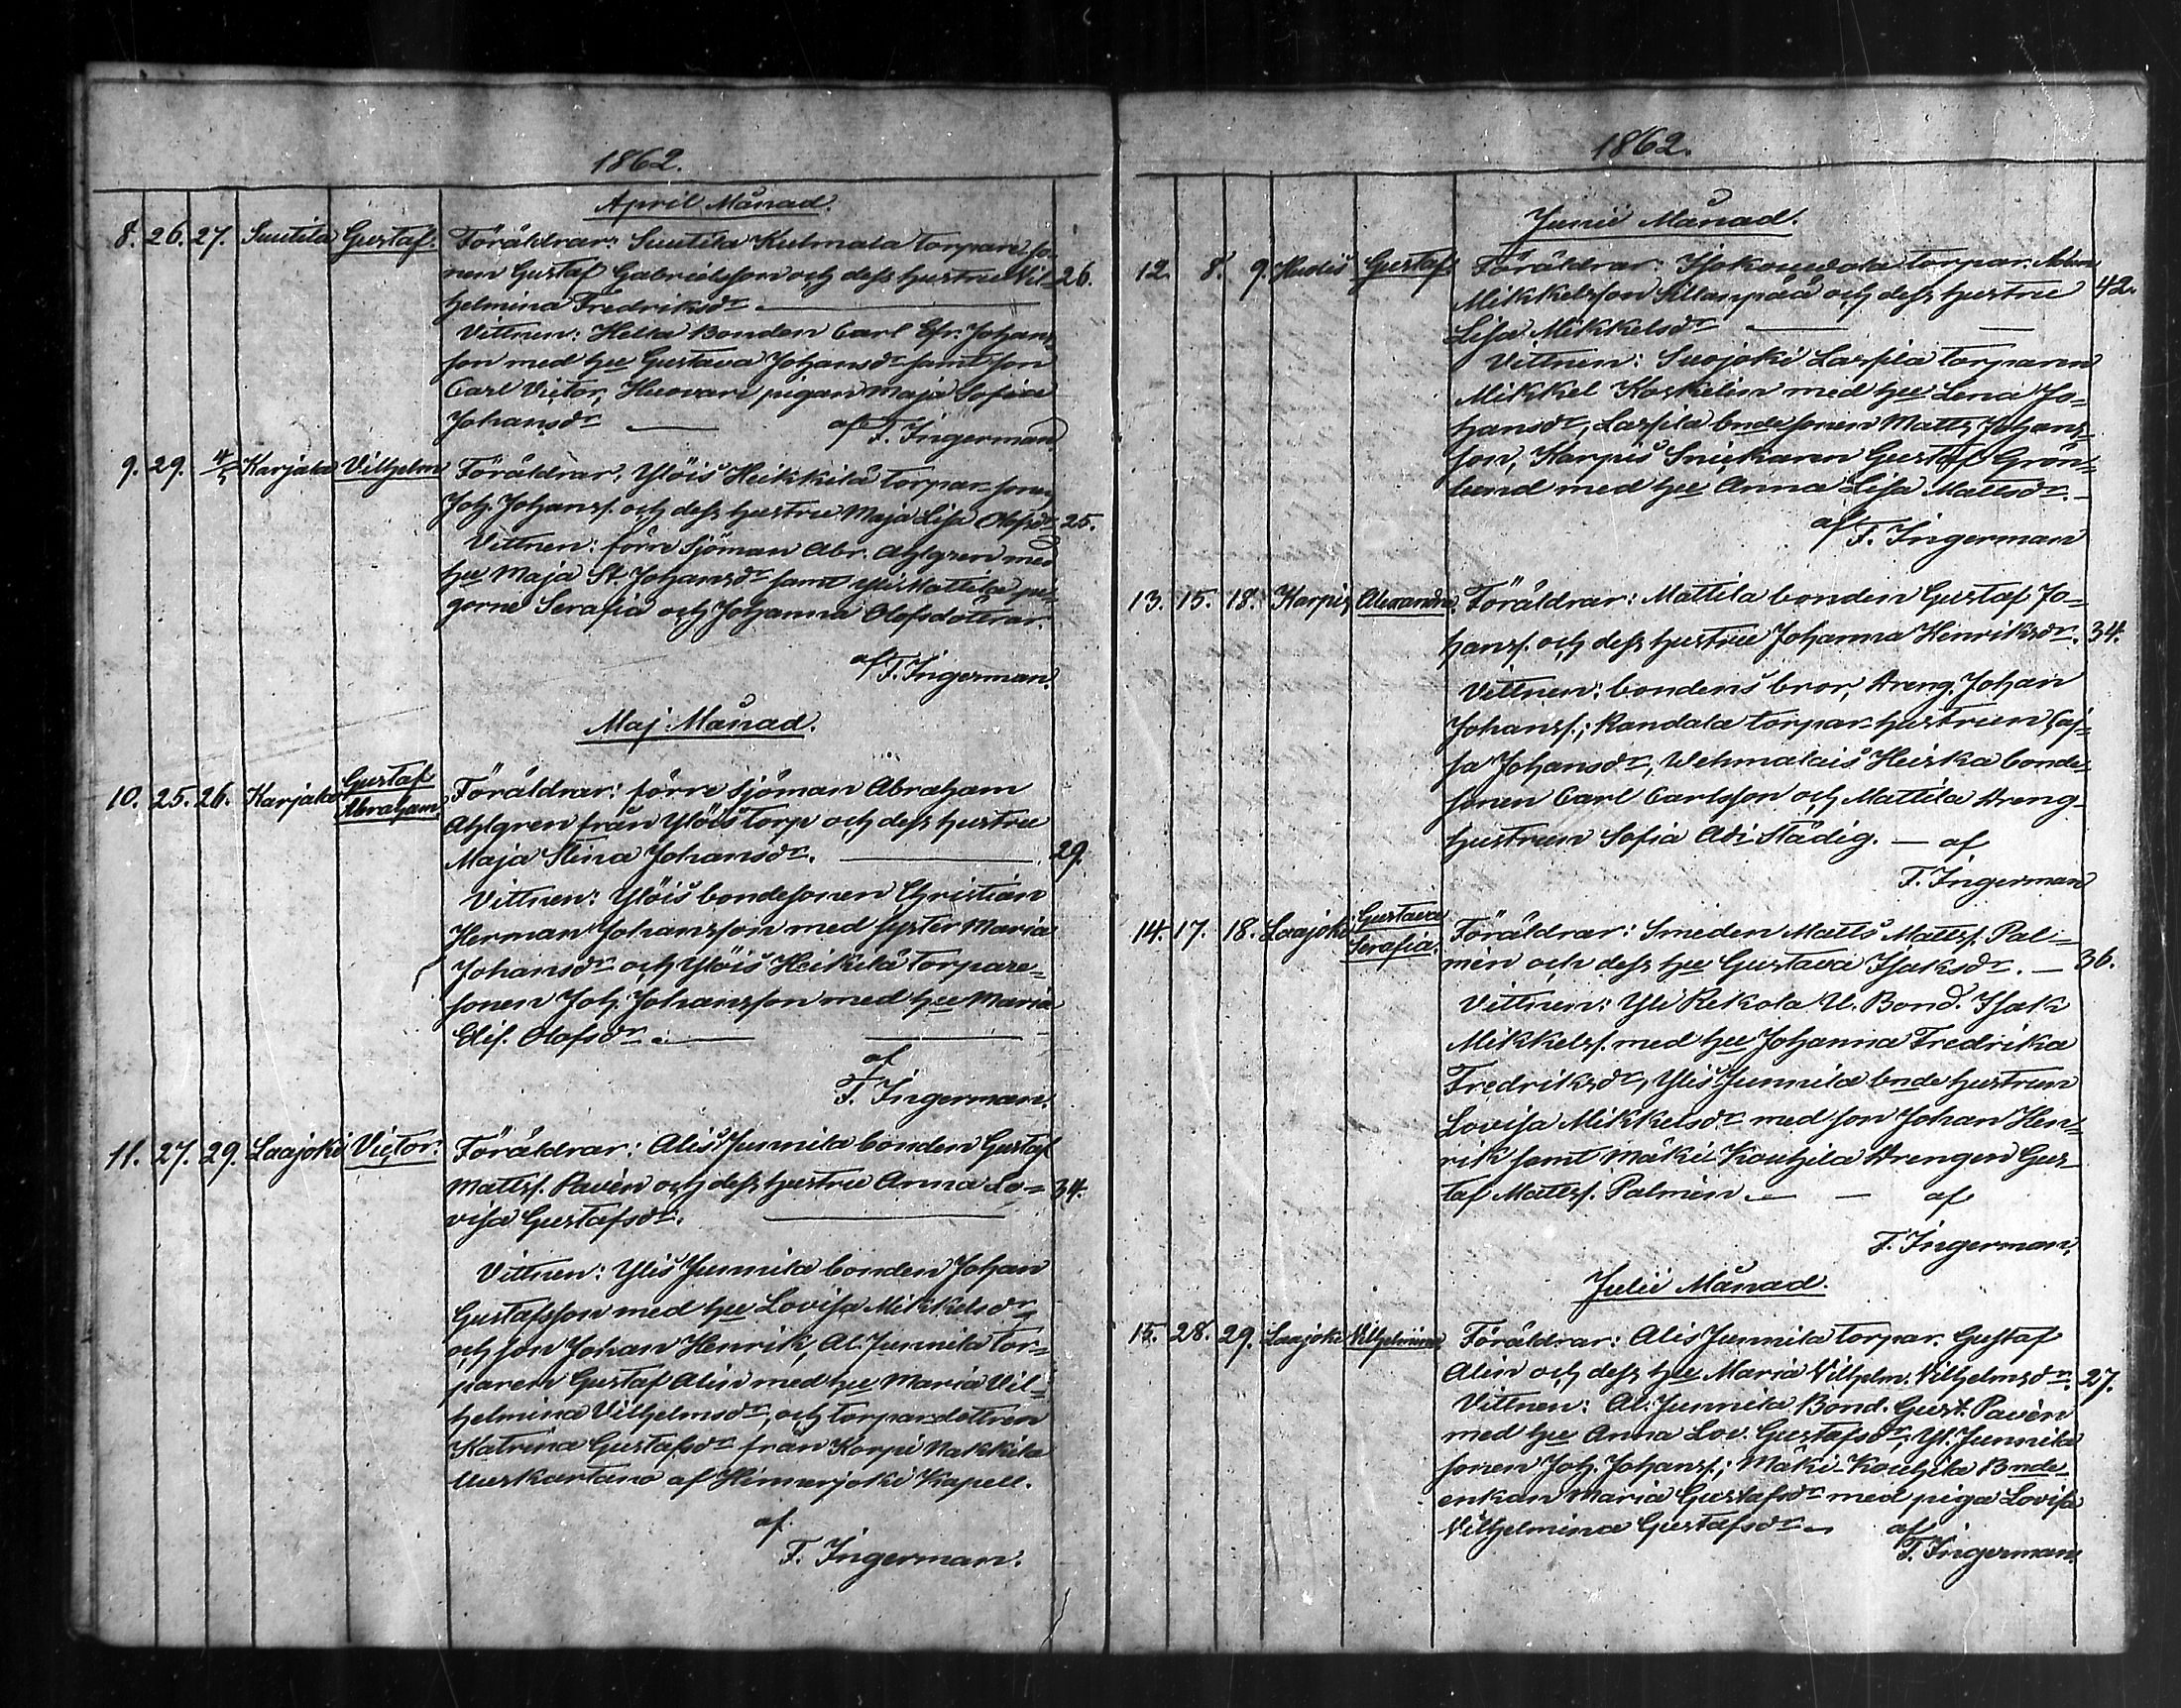 1862.
April Månad.
8. 26. 27. Suutila Gustaf. Föräldrar: Suutila Kulmala torpare so-
nen Gustaf Gabrielsson och dess hustru Vil- 26.
helmina Fredriksdr
Vittnen: Hella Bonden Carl Efr. Johans
son med hu Gustava Johansdr samt son
Carl Victor, Huovari pigan Maja Sofia
Johansdr af F. Ingerman
9. 29. 4/5 Karjala Vilhelm Föräldrar: Ylöis Heikkilä torpar sonen
Joh. Johanss. och dess hustru Maja Lisa Olofsdr 25.
Vittnen: förre Sjöman Abr. Ahlgren med
hu Maja St. Johansdr samt Yli Mattila pi-
gorne Serafia och Johanna Olofsdöttrar.
af F. Ingerman.
Maj Månad.
10. 25. 26. Karjala Gustaf Abraham. Föräldrar: förre Sjöman Abraham
Ahlgren från Ylöis torp och dess hustru
Maja Stina Johansdr. 29.
Vittnen: Ylöis bondesonen Christian
Herman Johansson med syster Maria
Johansdr och Ylöis Heikilä torpare-
sonen Joh. Johansson med hu Maria
Elis. Olofsdr.
af
F. Ingerman.
11. 27. 29. Laajoki Victor. Föräldrar: Alis Junnila bonden Gustaf
Mattss. Pavèn och dess hustru Anna Lo- 34.
visa Gustafsdr.
Vittnen: Ylis Junnila bonden Johan
Gustafsson med hu Lovisa Mikkelsdr
och son Johan Henrik, Al. Junnila tor-
paren Gustaf Alin med hu Maria Vil-
helmina Vilhelmsdr, och torpardottren
Katrina Gustafsdr från Korpi Nakkila
Uuskartano af Hinnerjoki Kapell.
af
F. Ingerman.
1862.
Junii Månad.
12. 8. 9. Hudis Gustaf Föräldrar: Isokouvola torpar.
Mikkelsson Sillanpää och dess hustru 42.
Lisa Mikkelsdr
Vittnen: Suojoki Lassila torparen
Mikkel Koskelin med hu Lena Jo-
hansdr, Lassila bndesonen Matts Johans-
son, Karpis Snickaren Gustaf Grön-
lund med hu Anna Lisa Mattsdr.
af F. Ingerman
13. 15. 18. Karpis Alexandra Föräldrar: Mattila bonden Gustaf Jo-
hanss. och dess hustru Johanna Henriksdr. 34.
Vittnen: bondens bror, Dreng. Johan
Johanss.; Randala torpar-hustrun Caj-
sa Johansdr; Wehmalais Heiska bonde-
sonen Carl Carlsson och Mattila Dreng-
hustrun Sofia Adr Städig. — af
F. Ingerman
14. 17. 18. Laajoki Gustava Serafia. Föräldrar: Smeden Matts Mattss. Pal-
min och dess hu Gustava Isaksdr. 36.
Vittnen: Yli Rekola U. Bond. Isak
Mikkelss. med hu Johanna Fredrika
Fredriksdr, Ylis Junnila bnde hustrun
Lovisa Mikkelsdr med son Johan Hen-
rik samt Mäki-Kouhila Drengen Gus-
taf Mattss. Palmin af
F. Ingerman.
Julii Månad.
15. 28. 29. Laajoki Vilhelmina Föräldrar: Alis Junnila torpar. Gustaf
Alin och dess hu Maria Vilhelm. Vilhelmsdr. 27.
Vittnen: Al. Junnila Bond. Gust. Pavèn
med hu Anna Lov. Gustafsdr, Yl. Junnila
sonen Joh. Johanss.; Mäki-Kouhila Bnde-
enkan Maria Gustafsdr med piga Lovisa
Vilhelmina Gustafsdr af
F. Ingerman.